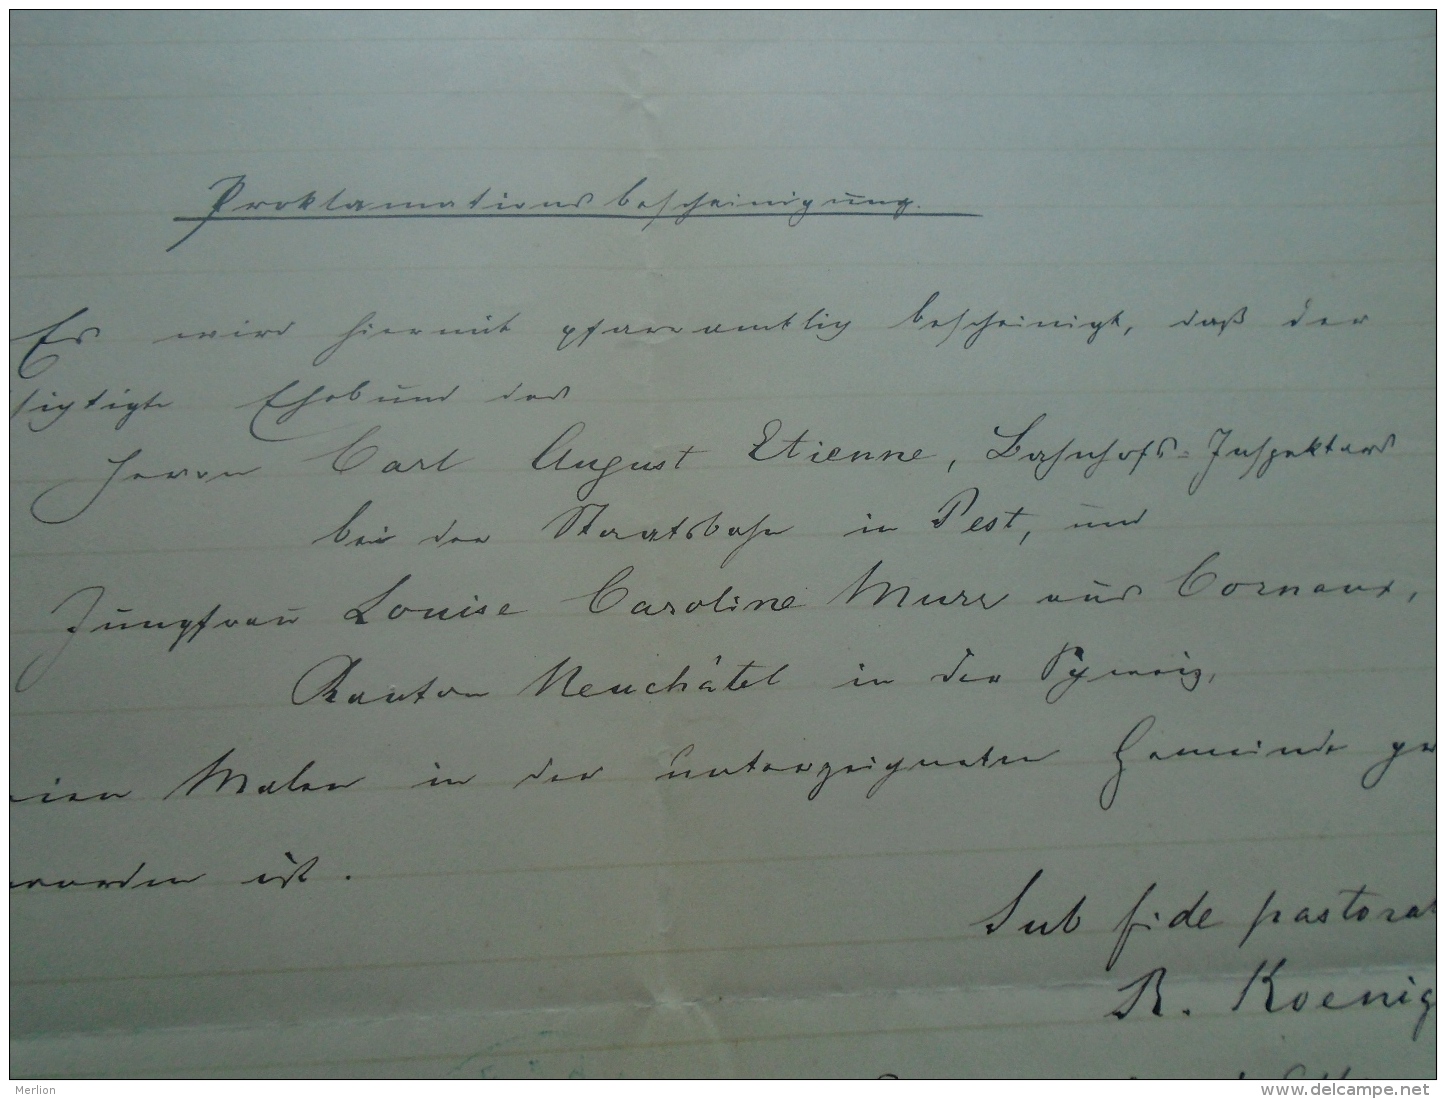 Proklamationsbescheinigung.
Es wird hiermit pfarramtlich bescheinigt, daß der
sichtigte Ehebund des
Herrn Carl August Etienne, Bahnhofs-Inspektors
bei der Staatsbahn in Pest, und
Jungfrau Louise Caroline Murr aus Cornaux,
Kanton Neuchâtel in der Schweiz,
eien Malen in der unterzeichneten Gemeinde ge
worden ist.
Sub fide pastoral
R. Koenig
Merlion
www.delcampe.net